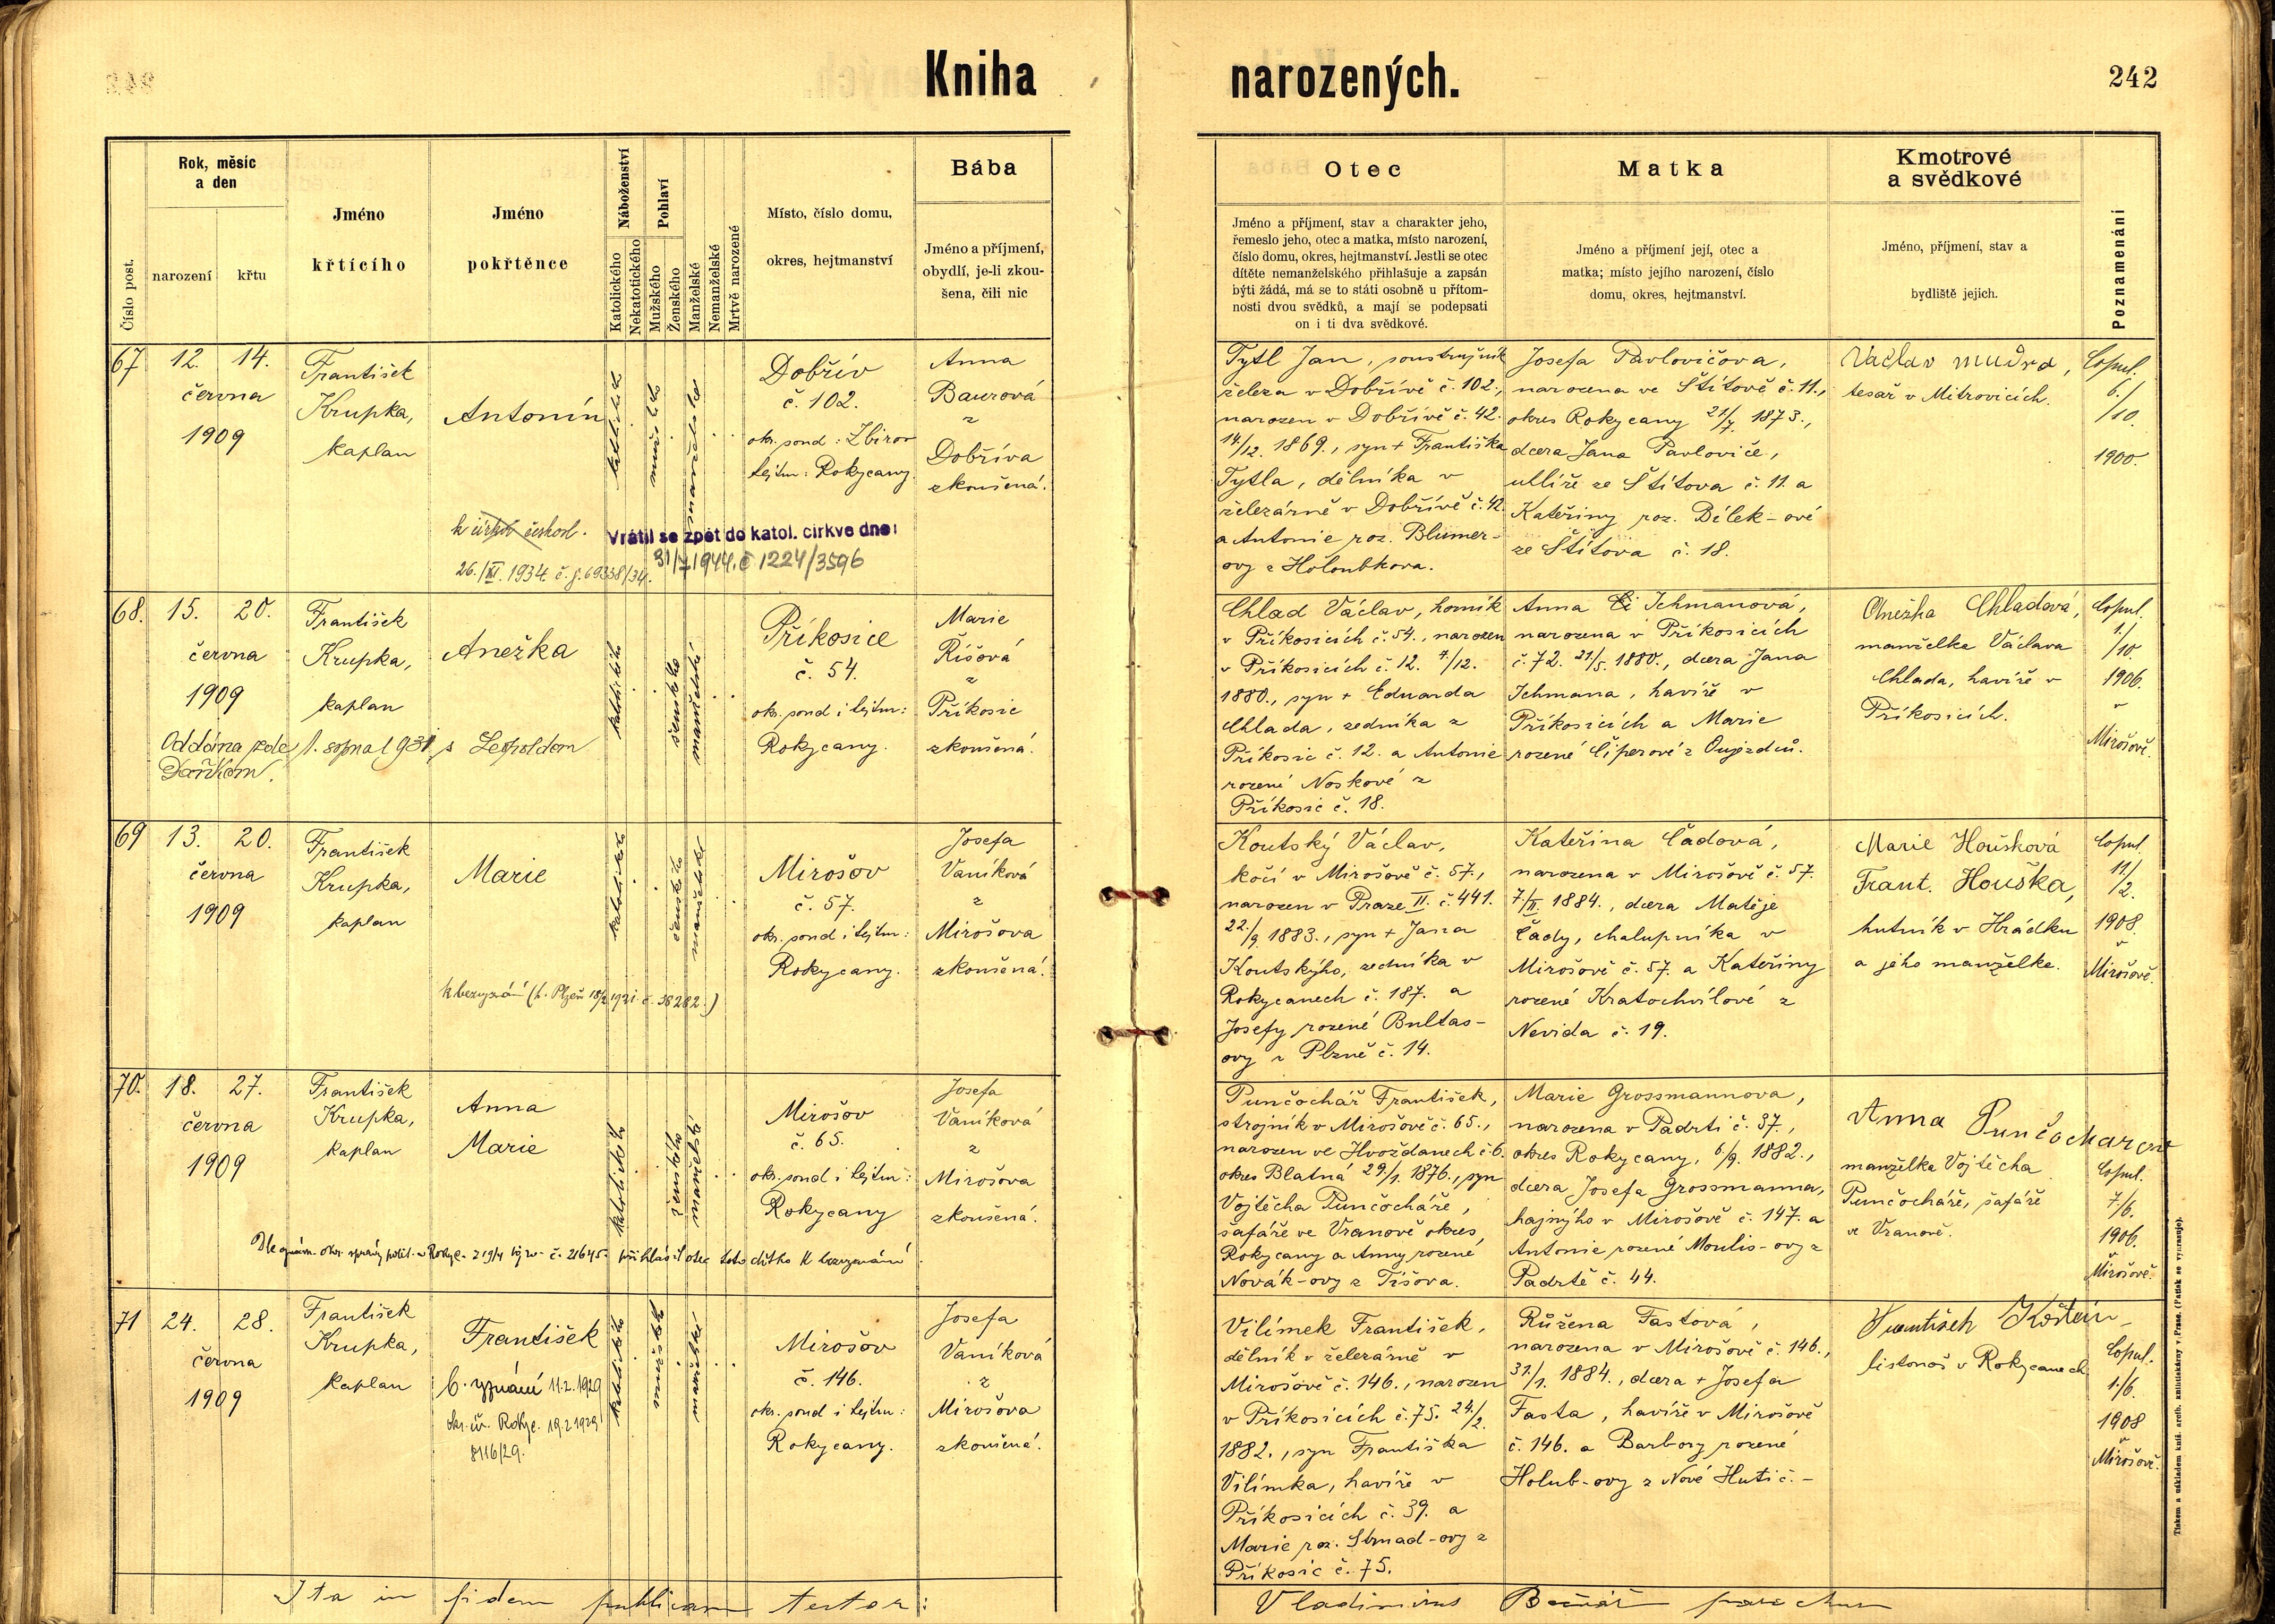 Kniha narozených.
242
Číslo post.
Rok, měsíc
a den
narození
křtu
Jméno
křtícího
Jméno
pokřtěnce
Náboženství
Katolického
Nekatotického
Pohlaví
Mužského
Ženského
Manželské
Nemanželské
Mrtvě narozené
Místo, číslo domu,
okres, hejtmanství
Bába
Jméno a příjmení,
obydlí, je-li zkou-
šena, čili nic
Otec
Jméno a příjmení, stav a charakter jeho,
řemeslo jeho, otec a matka, místo narození,
číslo domu, okres, hejtmanství. Jestli se otec
dítěte nemanželského přihlašuje a zapsán
býti žádá, má se to státi osobně u přítom-
nosti dvou svědků, a mají se podepsati
on i ti dva svědkové.
Matka
Jméno a příjmení její, otec a
matka; místo jejího narození, číslo
domu, okres, hejtmanství.
Kmotrové
a svědkové
Jméno, příjmení, stav a
bydliště jejich.
Poznamenání
67
12. 14.
června
1909
František
Krupka,
kaplan
Antonín
katolického
mužského
manželské
Dobřív
č. 102.
okr. soud: Zbirov
hejtm: Rokycany
Anna
Baurová
z
Dobříva
zkoušená.
k církvi českosl.
26./XI. 1934. č. j. 69338/34.
Vrátil se zpět do katol. církve dne:
31/7 1944. č 1224/3596
Tytl Jan, soustružník
železa v Dobřívě č. 102.,
narozen v Dobřívě č. 42.
14/12. 1869., syn + Františka
Tytla, dělníka v
železárně v Dobřívě č. 42.
a Antonie roz. Blumer-
ovy z Holoubkova.
Josefa Pavlovičova,
narozena ve Štítově č. 11.,
okres Rokycany 21/7. 1873.,
dcera Jana Pavloviče,
uhlíře ze Štítova č. 11. a
Kateřiny roz. Bílek-ové
ze Štítova č. 18.
Vaclav mudra,
tesař v Mitrovicích.
Copul.
6./
/10.
1900.
68.
15. 20.
června
1909
František
Krupka,
kaplan
Anežka
katolického
ženského
manželské
Příkosice
č. 54.
okr. soud i hejtm:
Rokycany.
Marie
Říšová
z
Příkosic
zkoušená.
Oddána zde 1. srpna 1931, s Leopoldem
Daňkem.
Chlad Václav, horník
v Příkosicích č. 54., narozen
v Příkosicích č. 12. 7/12.
1880., syn + Eduarda
Chlada, zedníka z
Příkosic č. 12. a Antonie
rozené Noskové z
Příkosic č. 18.
Anna Ichmanová,
narozena v Příkosicích
č. 72. 21/5. 1880., dcera Jana
Ichmana, havíře v
Příkosicích a Marie
rozené Čiperové z Oujezdců.
Anežka Chladová,
manželka Václava
Chlada, havíře v
Příkosicích.
Copul.
1./
/10.
1906.
v
Mirošově.
69
13. 20.
června
1909
František
Krupka,
kaplan
Marie
katolického
ženského
manželské
Mirošov
č. 57.
okr. soud i hejtm:
Rokycany.
Josefa
Vaníková
z
Mirošova
zkoušená.
k bezvyznání (h. Plzeň 18/2 1921 č. 38282.)
Koutský Václav,
kočí v Mirošově č. 57.,
narozen v Praze II. č. 441.
22./9. 1883., syn + Jana
Koutskýho, zedníka v
Rokycanech č. 187. a
Josefy rozené Bultas-
ovy z Plzně č. 14.
Kateřina Čadová,
narozena v Mirošově č. 57.
7/II. 1884., dcera Matěje
Čady, chalupníka v
Mirošově č. 57. a Kateřiny
rozené Kratochvílové z
Nevida č. 19.
Marie Houšková
Frant. Houška,
hutník v Hrádku
a jeho manželka.
Copul.
11/
/2.
1908.
v
Mirošově.
70.
18. 27.
června
1909
František
Krupka,
kaplan
Anna
Marie
katolického
ženského
manželské
Mirošov
č. 65.
okr. soud i hejtm:
Rokycany
Josefa
Vaníková
z
Mirošova
zkoušená.
Dle oznám. okr. správy polit. v Rokyc. z 19/4 č. 21645 přihlásil otec toto dítko k bezvyznání
Punčochář František,
strojník v Mirošově č. 65.,
narozen ve Hvožďanech č. 6.
okres Blatná 29./1. 1876., syn
Vojtěcha Punčocháře,
šafáře ve Vranově okres
Rokycany a Anny rozené
Novák-ovy z Tišova.
Marie Grossmannova,
narozena v Padrti č. 37.,
okres Rokycany, 6/9. 1882.,
dcera Josefa Grossmanna,
hajnýho v Mirošově č. 147. a
Antonie rozené Moulis-ovy z
Padrtě č. 44.
Anna Punčochářová
manželka Vojtěcha
Punčocháře, šafáře
ve Vranově.
Copul.
7/6.
1906.
v
Mirošově.
71
24. 28.
června
1909
František
Krupka,
kaplan
František
b. vyznání 11.2.1929
okr. úř. Rokyc. 19.2.1929
8116/29.
katolického
mužského
manželské
Mirošov
č. 146.
okr. soud i hejtm:
Rokycany.
Josefa
Vaníková
z
Mirošova
zkoušená.
Vilímek František,
dělník v železárně v
Mirošově č. 146., narozen
v Příkosicích č. 75. 24./2.
1882., syn Františka
Vilímka, havíře v
Příkosicích č. 39. a
Marie roz. Strnad-ovy z
Příkosic č. 75.
Růžena Fastová,
narozena v Mirošově č. 146.,
31./1. 1884., dcera + Josefa
Fasta, havíře v Mirošově
č. 146. a Barbory rozené
Holub-ovy z Nové Huti č. -
František
listonoš v Rokycanech
Copul.
1./6.
1908
v
Mirošově.
Ita in fidem publicam testor:
Vladimirus parochus
Tiskem a nákladem knihtiskárny v Praze. (Patisk se vyhrazuje).